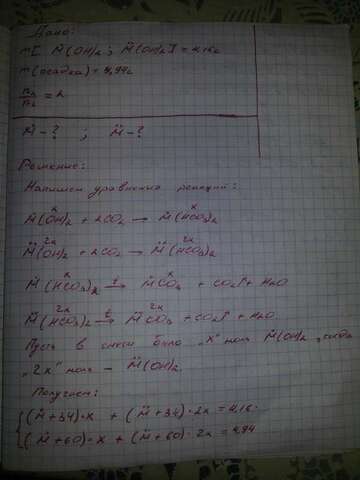 Дано:
m[Ṁ(OH)₂; M̈(OH)₂] = 4,16г
m(осадка) = 4,94г
n₂/n₁ = 2
Ṁ - ? ; M̈ - ?
Решение:
Напишем уравнения реакций:
x
Ṁ(OH)₂ + 2CO₂ → Ṁ(HCO₃)₂
2x 2x
M̈(OH)₂ + 2CO₂ → M̈(HCO₃)₂
x x
Ṁ(HCO₃)₂ →t ṀCO₃ + CO₂↑ + H₂O
2x 2x
M̈(HCO₃)₂ →t M̈CO₃ + CO₂↑ + H₂O
Пусть в смеси было "x" моль Ṁ(OH)₂, тогда
"2x" моль - M̈(OH)₂.
Получаем:
(Ṁ+34)·x + (M̈+34)·2x = 4,16
(Ṁ+60)·x + (M̈+60)·2x = 4,94